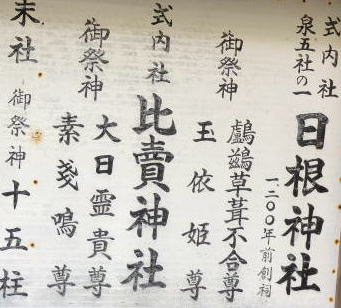 式内社
泉五社の一
日根神社
一二〇〇年前創祠
御祭神
鸕鷀草葺不合尊
玉依姫尊
式内社
比賣神社
御祭神
大日霊貴尊
素戔鳴尊
末社
御祭神十五柱